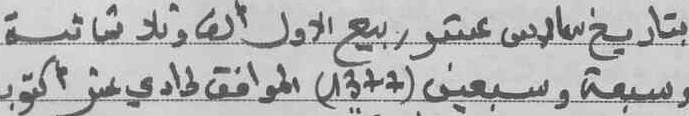 بتاريخ سادس عشر ربيع الاول ألف وثلاثمائة
وسبعة وسبعين (1377) الموافق لحادي عشر أكتوبر